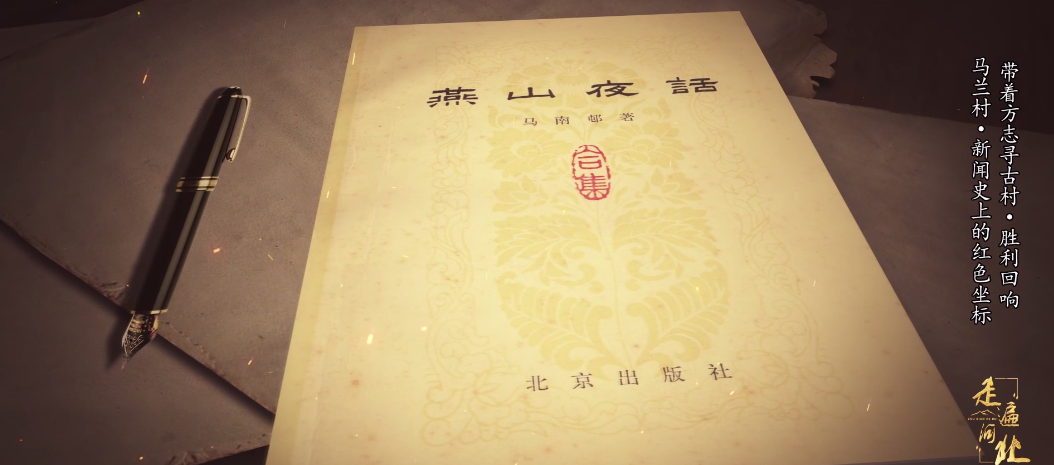 燕山夜話
马南邨著
合集
北京出版社
带着方志寻古村·胜利回响
马兰村·新闻史上的红色坐标
走遍河北